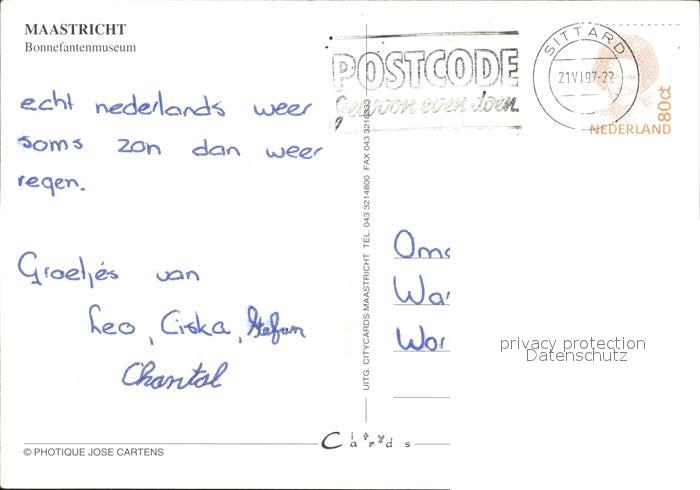 MAASTRICHT
Bonnefantenmuseum
echt nederlands weer
soms zon dan weer
regen.
Groetjes van
Leo, Ciska, Stefan
Chantal
© PHOTIQUE JOSE CARTENS
UITG. CITYCARDS MAASTRICHT TEL. 043 3214800 FAX 043
Cards
POSTCODE
Gewoon even doen.
SITTARD
21VI97-22
80ct
NEDERLAND
privacy protection
Datenschutz